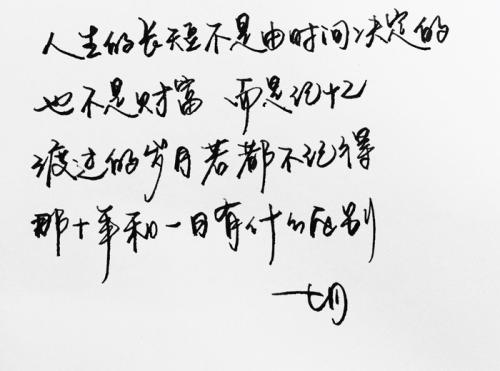 人生的长短不是由时间决定的
也不是财富 而是记忆
渡过的岁月若都不记得
那十年和一日有什么区别
一七月